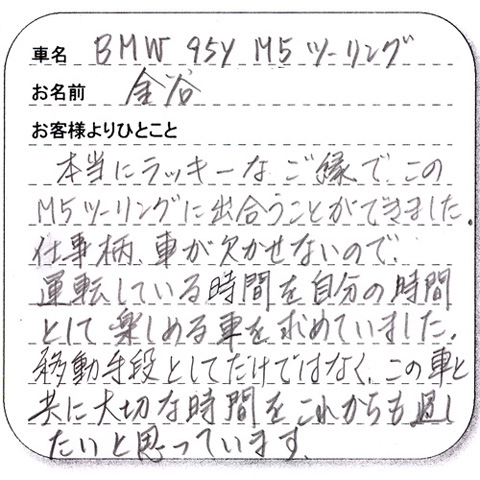 車名 BMW 95y M5 ツーリング
お名前 金谷
お客様よりひとこと
本当にラッキーなご縁で、この
M5ツーリングに出合うことができました。
仕事柄、車が欠かせないので、
運転している時間を自分の時間
として楽しめる車を求めていました。
移動手段としてだけではなく、この車と
共に大切な時間をこれからも過し
たいと思っています。